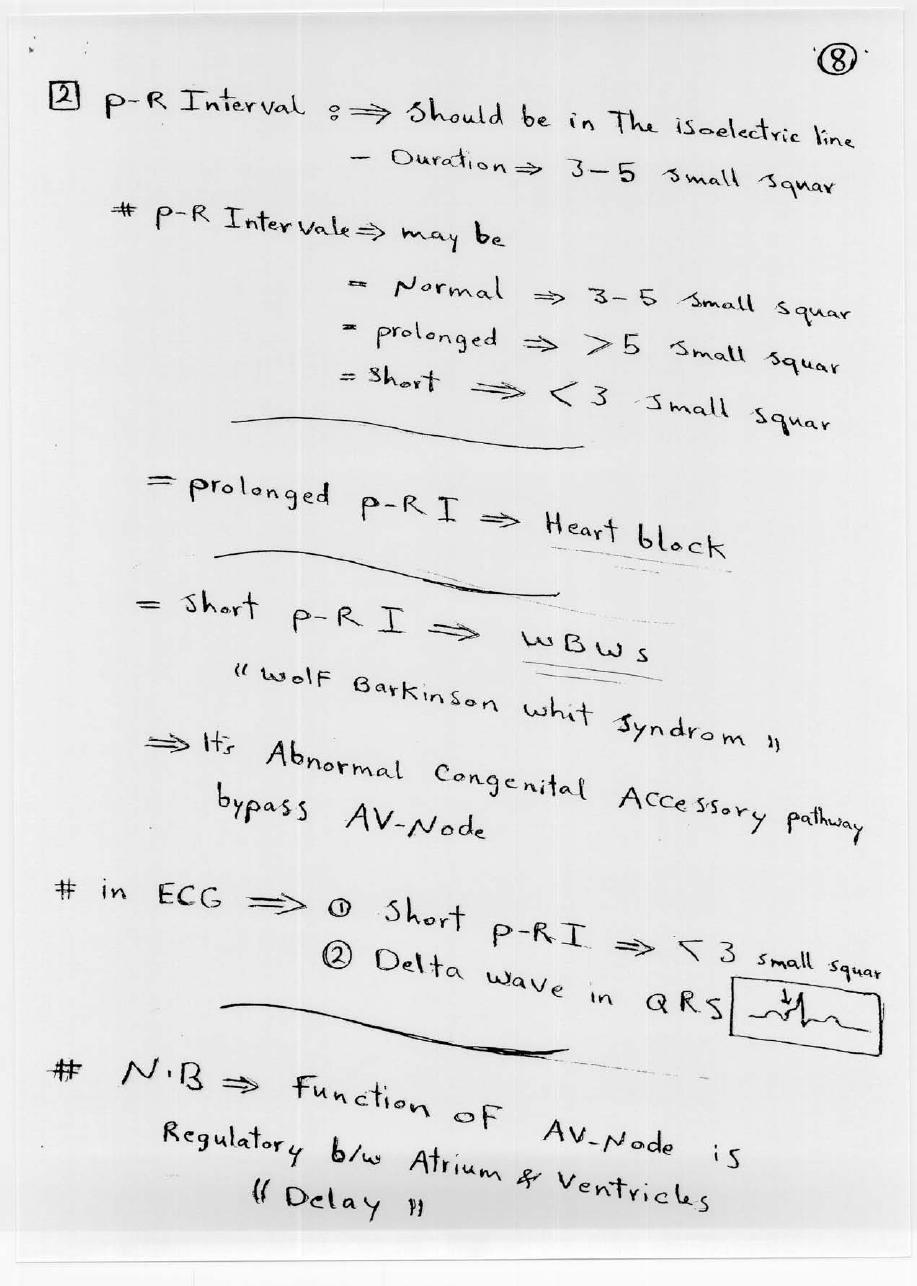 ⑧
2 P-R Interval :⇒ Should be in The isoelectric line
- Duration ⇒ 3-5 small squar
# P-R Intervale ⇒ may be
= Normal ⇒ 3-5 small squar
= prolonged ⇒ >5 small squar
= Short ⇒ < 3 small squar
= prolonged P-R I ⇒ Heart block
= Short P-R I ⇒ WBWS
" Wolf Barkinson whit syndrom "
⇒ It's Abnormal Congenital Accessory pathway
bypass AV-Node
# in ECG ⇒ ① Short P-R I ⇒ < 3 small squar
② Delta wave in QRS
# N.B ⇒ Function of AV-Node is
Regulatory b/w Atrium & Ventricles
" Delay "